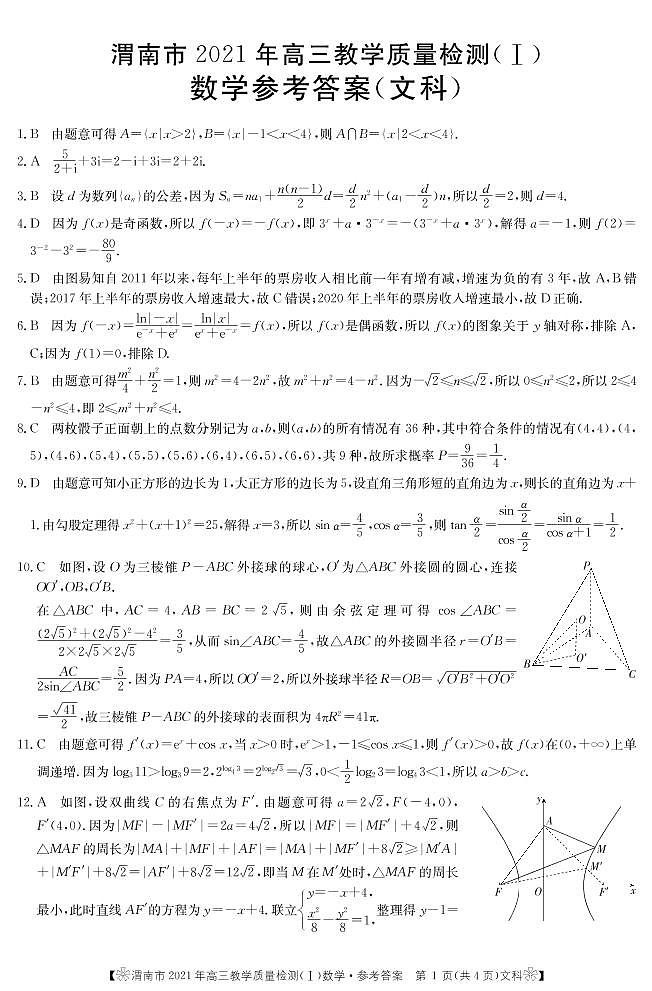 渭南市 2021 年高三教学质量检测(Ⅰ)
数学参考答案(文科)
1. B 由题意可得 A={x|x>2},B={x|-1<x<4},则 A∩B={x|2<x<4}.
2. A 5/(2+i)+3i=2-i+3i=2+2i.
3. B 设 d 为数列{aₙ}的公差,因为 Sₙ=na₁+n(n-1)/2 d=d/2 n²+(a₁-d/2)n,所以 d/2=2,则 d=4.
4. D 因为 f(x)是奇函数,所以 f(-x)=-f(x),即 3ˣ+a·3⁻ˣ=-(3⁻ˣ+a·3ˣ),解得 a=-1,则 f(2)=
3⁻²-3²=-80/9.
5. D 由图易知自 2011 年以来,每年上半年的票房收入相比前一年有增有减,增速为负的有 3 年,故 A,B 错
误;2017 年上半年的票房收入增速最大,故 C 错误;2020 年上半年的票房收入增速最小,故 D 正确.
6. B 因为 f(-x)=ln|-x|/(e⁻ˣ+eˣ)=ln|x|/(eˣ+e⁻ˣ)=f(x),所以 f(x)是偶函数,所以 f(x)的图象关于 y 轴对称,排除 A,
C;因为 f(1)=0,排除 D.
7. B 由题意可得 m²/4+n²/2=1,则 m²=4-2n²,故 m²+n²=4-n².因为-√2≤n≤√2,所以 0≤n²≤2,所以 2≤4
-n²≤4,即 2≤m²+n²≤4.
8. C 两枚骰子正面朝上的点数分别记为 a,b,则(a,b)的所有情况有 36 种,其中符合条件的情况有(4,4),(4,
5),(4,6),(5,4),(5,5),(5,6),(6,4),(6,5),(6,6),共 9 种,故所求概率 P=9/36=1/4.
9. D 由题意可知小正方形的边长为 1,大正方形的边长为 5,设直角三角形短的直角边为 x,则长的直角边为 x+
1.由勾股定理得 x²+(x+1)²=25,解得 x=3,所以 sin α=4/5,cos α=3/5,则 tan α/2=(sin α/2)/(cos α/2)=sin α/(cos α+1)=1/2.
10. C 如图,设 O 为三棱锥 P-ABC 外接球的球心,O′为△ABC 外接圆的圆心,连接
OO′,OB,O′B.
在△ABC 中,AC=4,AB=BC=2√5,则由余弦定理可得 cos∠ABC=
((2√5)²+(2√5)²-4²)/(2×2√5×2√5)=3/5,从而 sin∠ABC=4/5,故△ABC 的外接圆半径 r=O′B=
AC/(2sin∠ABC)=5/2.因为 PA=4,所以 OO′=2,所以外接球半径 R=OB=√(O′B²+O′O²)
=√41/2,故三棱锥 P-ABC 的外接球的表面积为 4πR²=41π.
P
O
A
B
O′
C
11. C 由题意可得 f′(x)=eˣ+cos x,当 x>0 时,eˣ>1,-1≤cos x≤1,则 f′(x)>0,故 f(x)在(0,+∞)上单
调递增.因为 log₃11>log₃9=2,2^(log₄3)=2^(log₂√3)=√3,0<1/2 log₂3=log₄3<1,所以 a>b>c.
12. A 如图,设双曲线 C 的右焦点为 F′.由题意可得 a=2√2,F(-4,0),
F′(4,0).因为|MF|-|MF′|=2a=4√2,所以|MF|=|MF′|+4√2,则
△MAF 的周长为|MA|+|MF|+|AF|=|MA|+|MF′|+8√2≥|M′A|
+|M′F′|+8√2=|AF′|+8√2=12√2,即当 M 在 M′处时,△MAF 的周长
最小,此时直线 AF′的方程为 y=-x+4.联立{y=-x+4, x²/8-y²/8=1, 整理得 y-1=
y
A
M
M′
F
O
F′
x
【渭南市 2021 年高三教学质量检测(Ⅰ)数学·参考答案 第 1 页(共 4 页)文科】